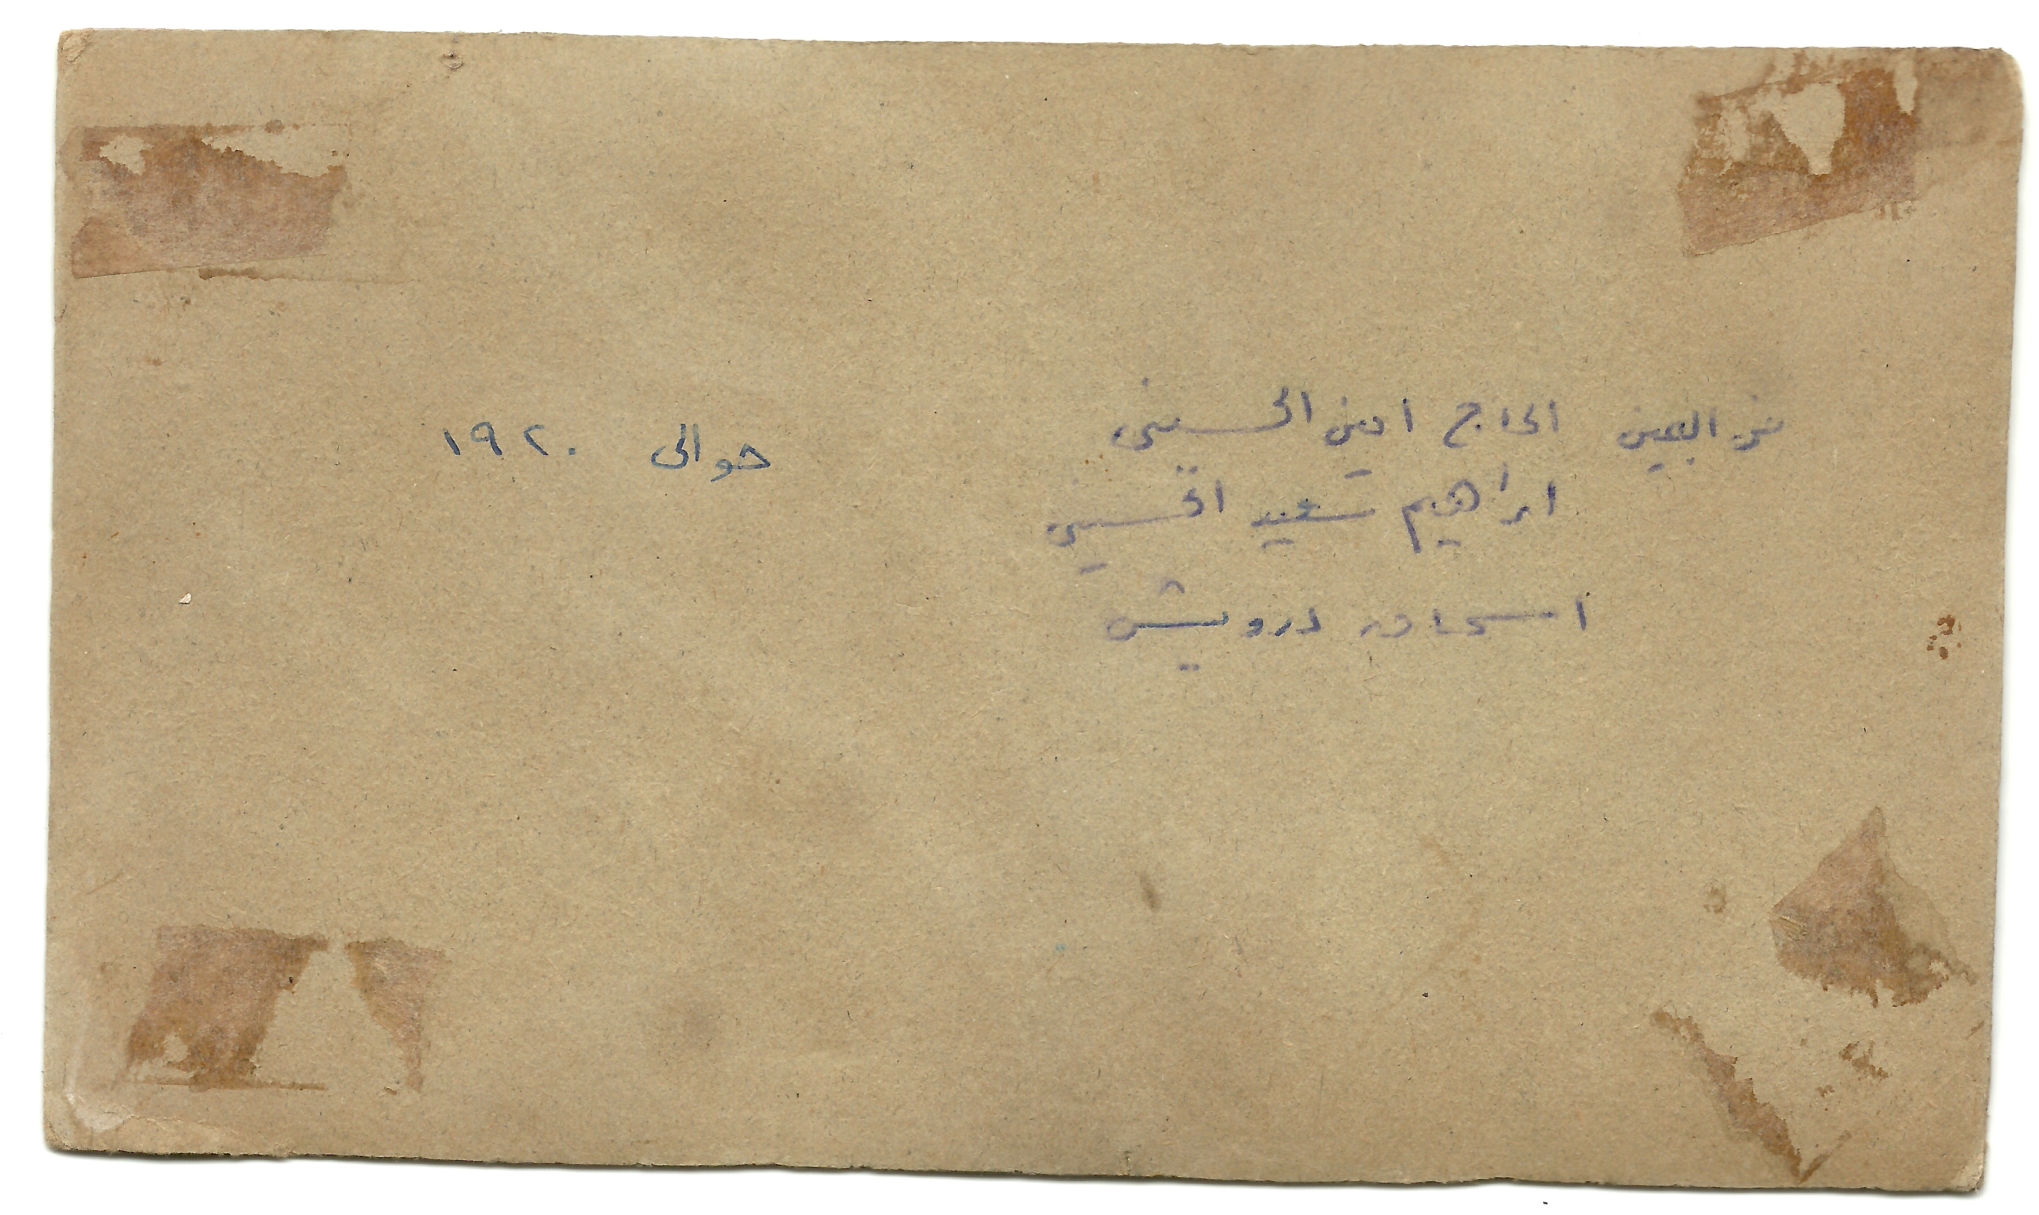 من اليمين الحاج امين الحسيني
ابراهيم سعيد الحسيني
اسحاق درويش
حوالى ١٩٢٠